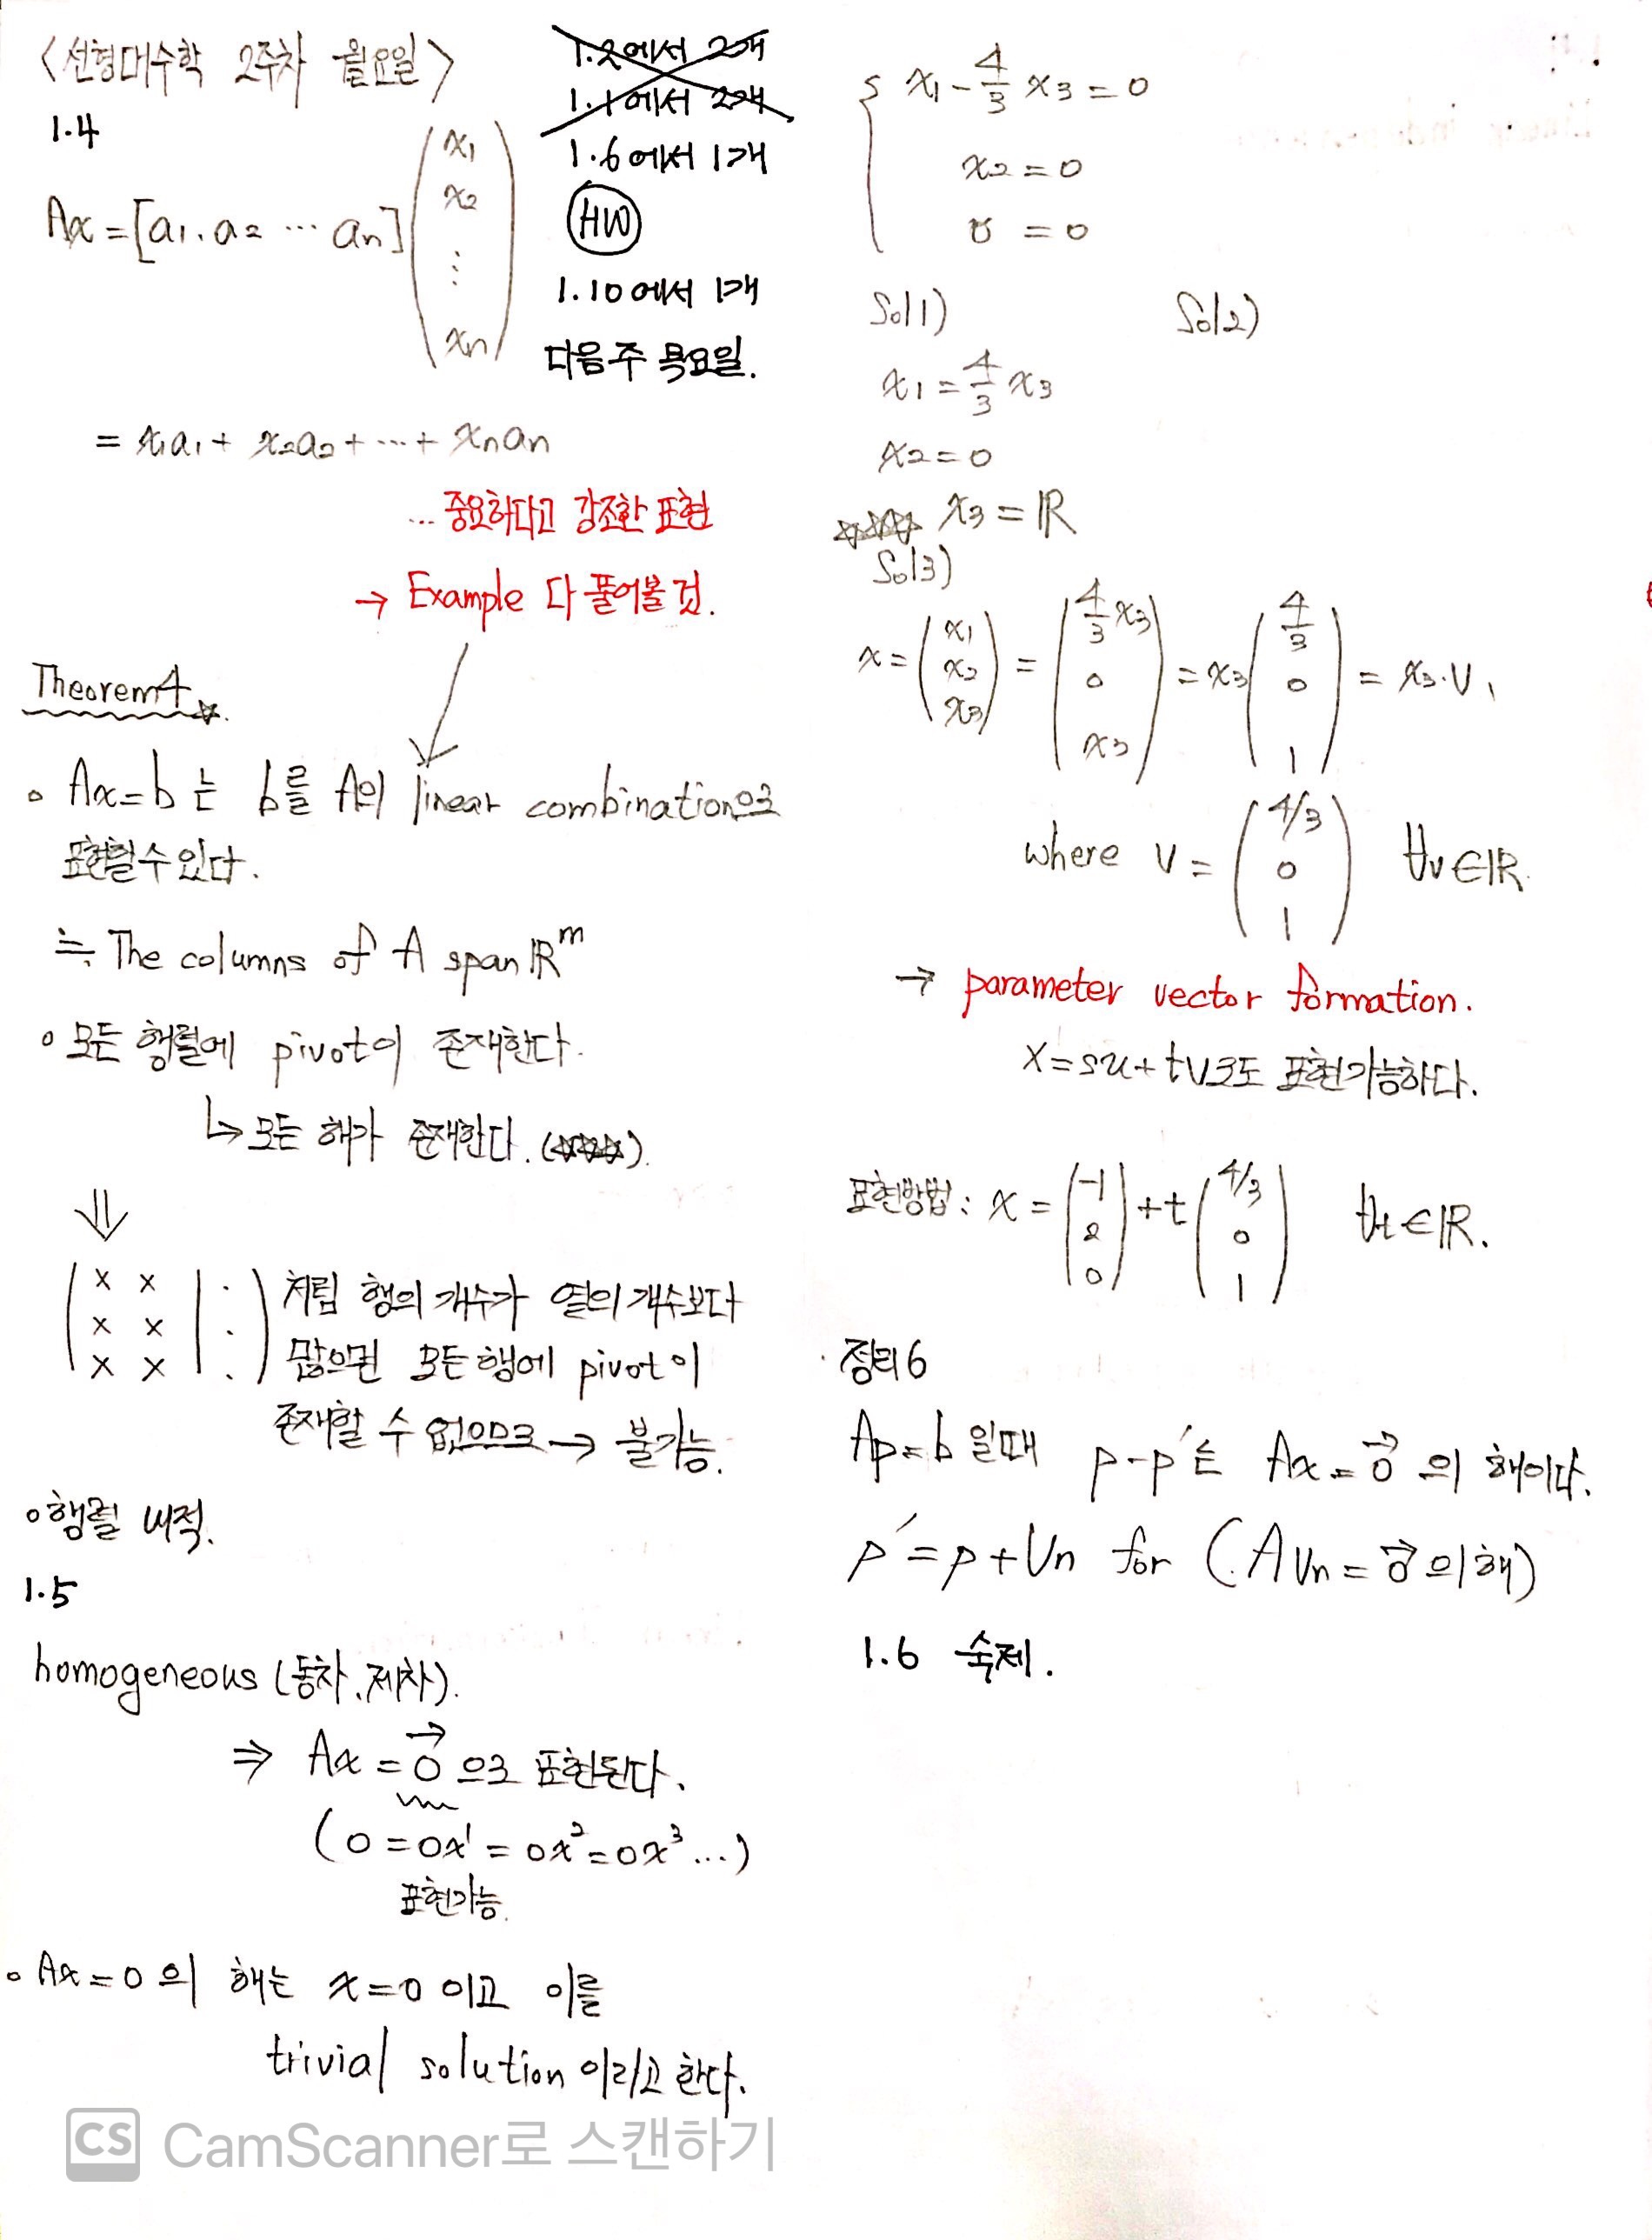 <선형대수학 2주차 월요일>
1.4
Ax = [a1, a2 ⋯ an] (x1 x2 ⋮ xn)
= x1a1 + x2a2 + ⋯ + xnan
1.2에서 2개
1.1에서 2개
1.6에서 1개
HW
1.10에서 1개
다음주 목요일.
… 중요하다고 강조한 표현
→ Example 다 풀어볼 것.
Theorem4 ☆.
∘ Ax=b 는 b를 A의 linear combination으로
표현할 수 있다.
≒ The columns of A span ℝ^m
∘ 모든 행렬에 pivot이 존재한다.
↳ 모든 해가 존재한다. (☆☆☆).
⇓
(x x | · x x | · x x | ·) 처럼 행의 개수가 열의 개수보다
많으면 모든 행에 pivot이
존재할 수 없으므로 → 불가능.
∘ 행렬 내적.
1.5
homogeneous (동차, 제차).
⇒ Ax = 0⃗ 으로 표현된다.
(0 = 0x¹ = 0x² = 0x³ ...)
표현가능.
∘ Ax=0 의 해는 x=0 이고 이를
trivial solution 이라고 한다.
x1 - 4/3 x3 = 0
x2 = 0
0 = 0
Sol1) Sol2)
x1 = 4/3 x3
x2 = 0
☆☆☆ x3 = ℝ
Sol3)
x = (x1 x2 x3) = (4/3 x3 0 x3) = x3 (4/3 0 1) = x3·v,
where v = (4/3 0 1) ∀v∈ℝ.
→ parameter vector formation.
x = su + tv로도 표현가능하다.
표현방법: x = (-1 2 0) + t (4/3 0 1) ∀t∈ℝ.
정리6
Ap=b 일때 p-p′는 Ax=0⃗ 의 해이다.
p′=p+Vn for (AVn = 0⃗ 의 해)
1.6 숙제.
CS CamScanner로 스캔하기